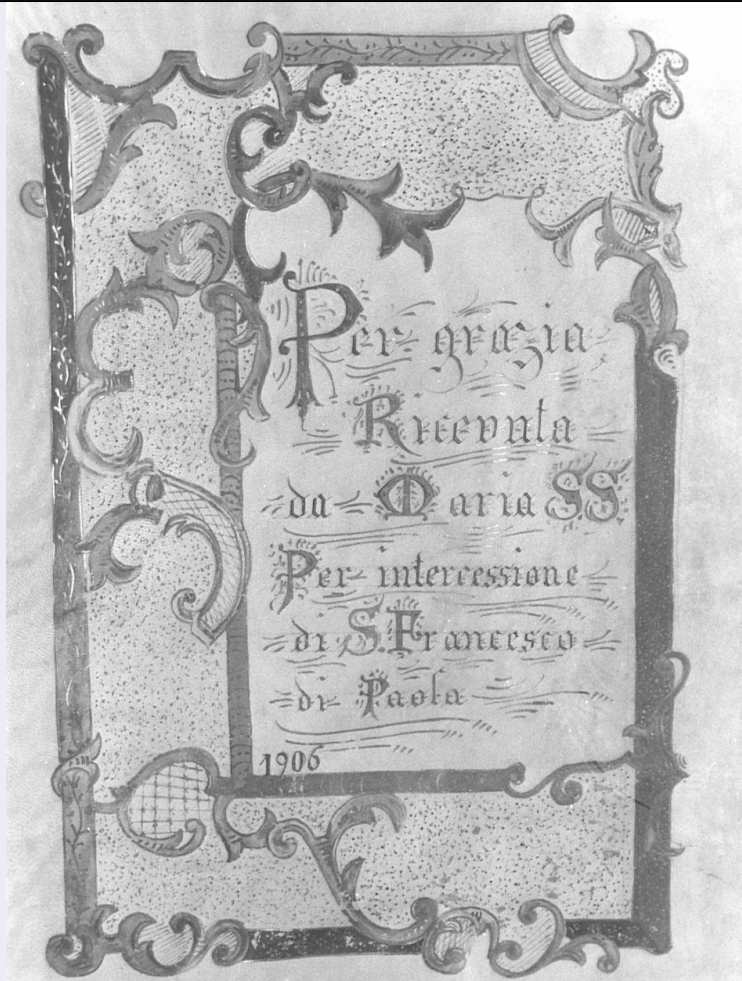 Per grazia
Ricevuta
da Maria SS
Per intercessione
di S. Francesco
di Paola
1906